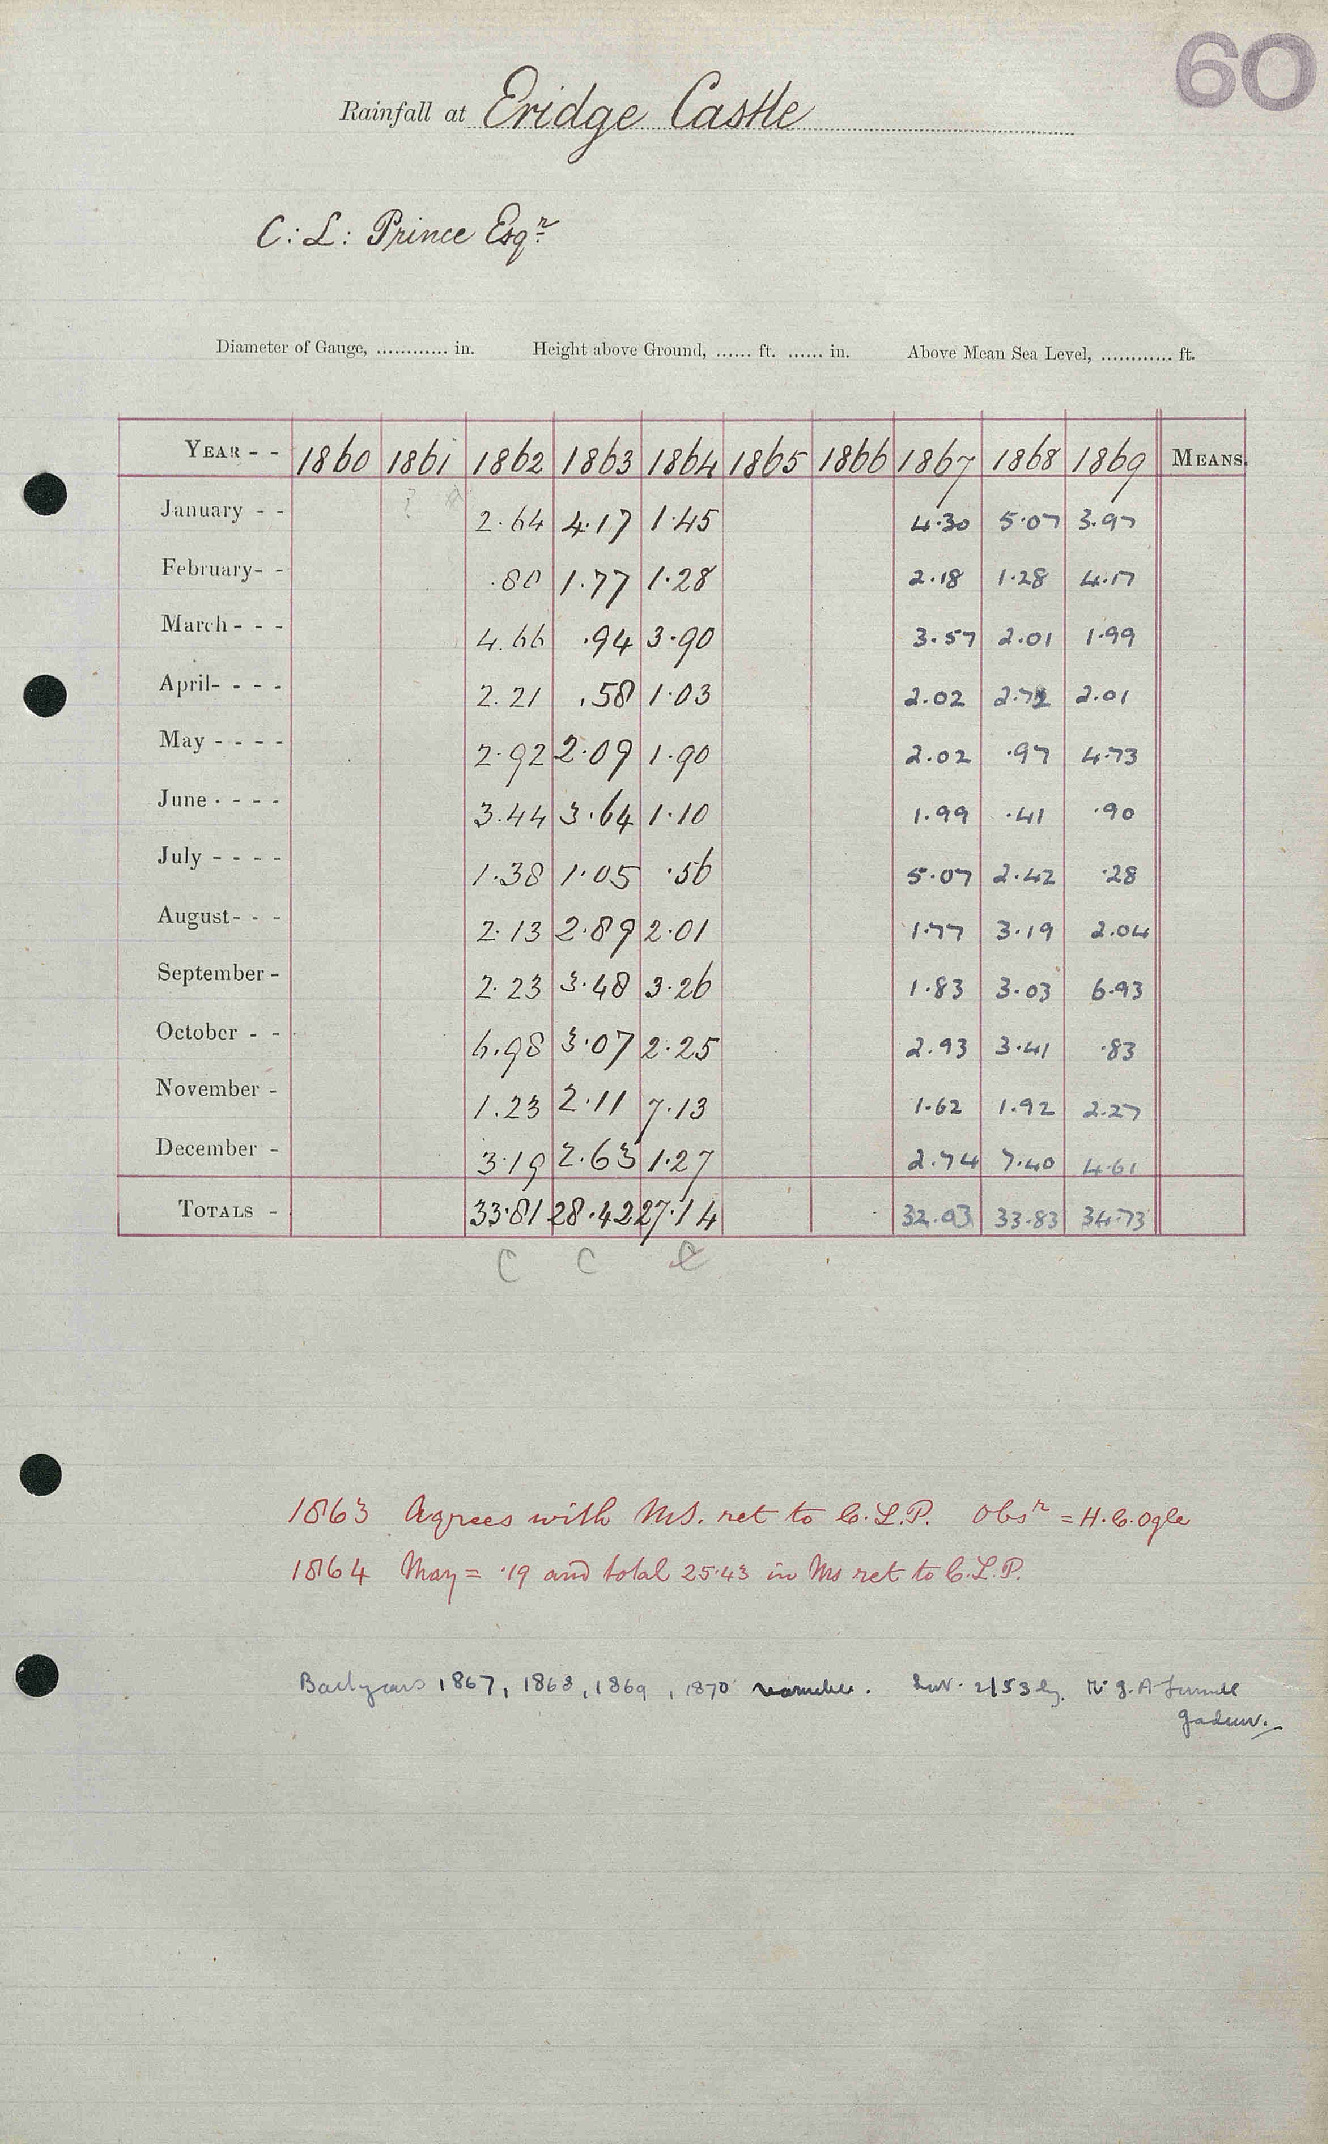 60
Rainfall at Eridge Castle
C: L: Prince Esqr
Diameter of Gauge, ............ in. Height above Ground, ...... ft. ...... in. Above Mean Sea Level, ............ ft.
YEAR - - 1860 1861 1862 1863 1864 1865 1866 1867 1868 1869 MEANS.
January - - 2.64 4.17 1.45 4.30 5.07 3.97
February- - .80 1.77 1.28 2.18 1.28 4.17
March - - - 4.66 .94 3.90 3.57 2.01 1.99
April- - - - 2.21 .58 1.03 2.02 2.72 2.01
May - - - - 2.92 2.09 1.90 2.02 .97 4.73
June - - - - 3.44 3.64 1.10 1.99 .41 .90
July - - - - 1.38 1.05 .56 5.07 2.42 .28
August- - - 2.13 2.89 2.01 1.77 3.19 2.04
September - 2.23 3.48 3.26 1.83 3.03 6.93
October - - 6.98 3.07 2.25 2.93 3.41 .83
November - 1.23 2.11 7.13 1.62 1.92 2.27
December - 3.19 2.63 1.27 2.74 7.40 4.61
TOTALS - 33.81 28.42 27.14 32.03 33.83 34.73
C C C
1863 Agrees with MS. ret to C.L.P. Obsr = H.C. Ogle
1864 May = .19 and total 25.43 in Ms ret to C.L.P.
Backyears 1867, 1868, 1869, 1870 2/53 by Mr